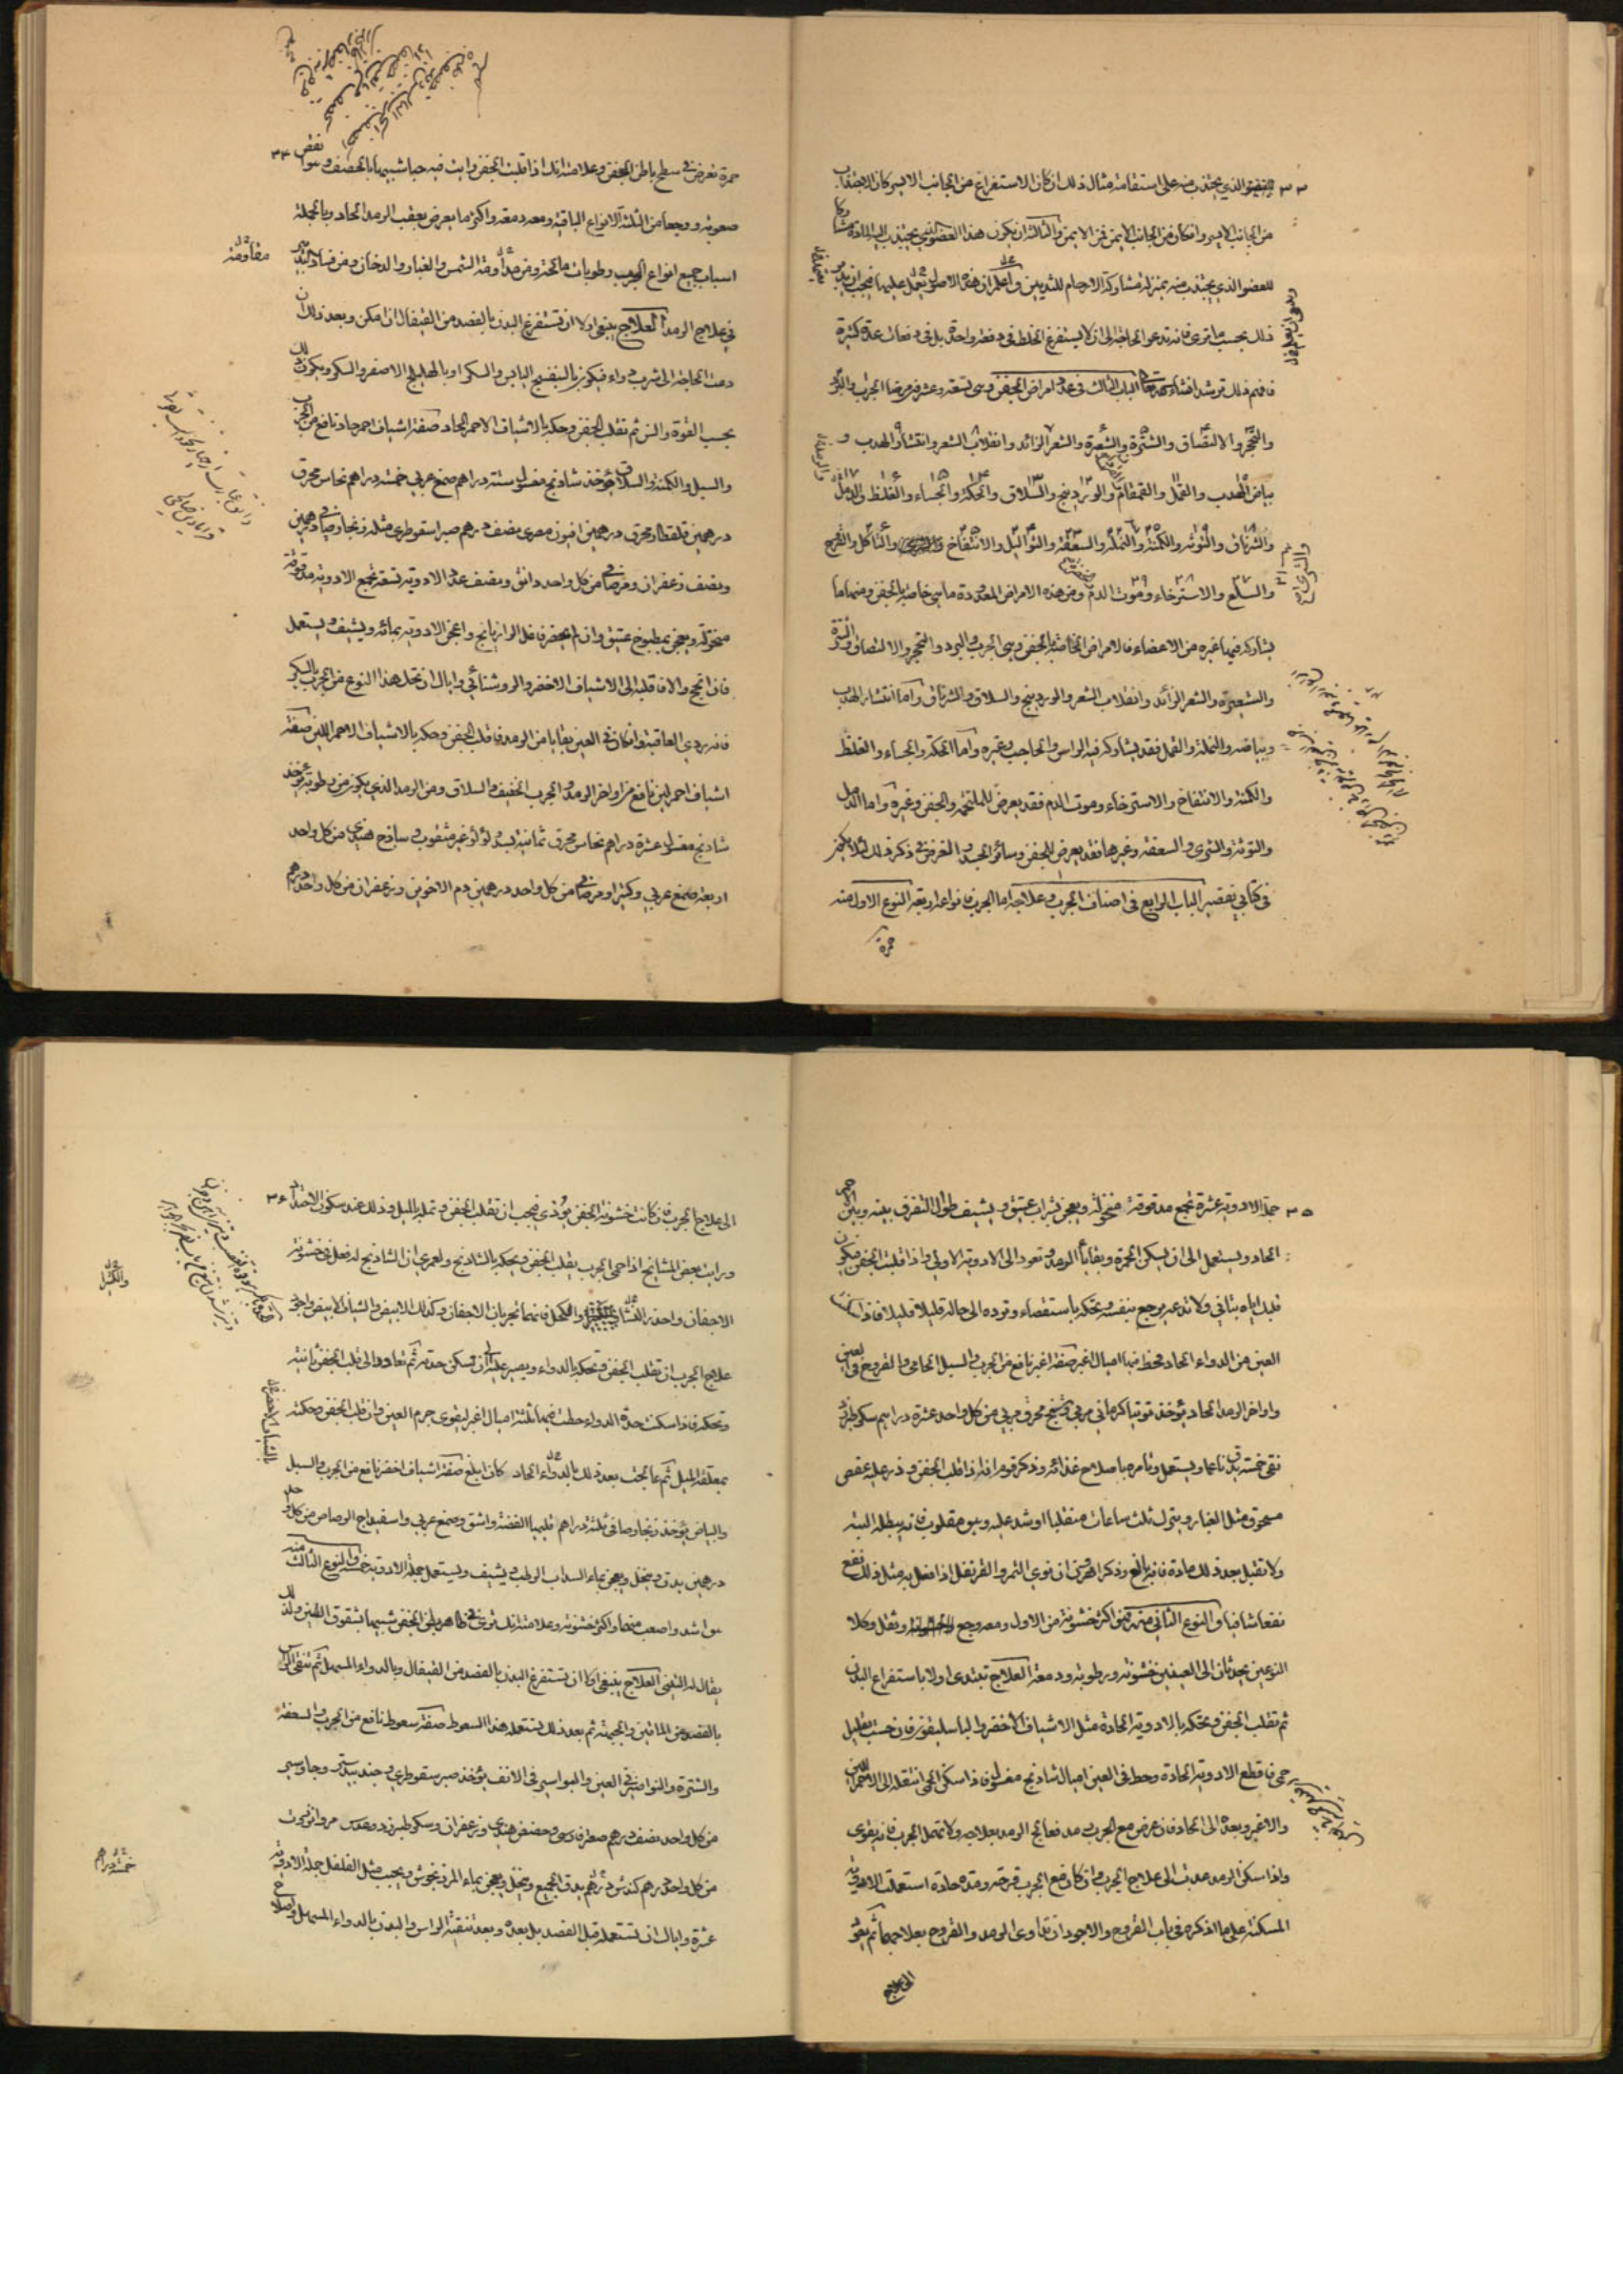 ٣٣ الذي يجتذب منه على استقامة مثال ذلك ان كان الاستفراغ من الجانب الايسر كان الاجتذاب
من الجانب الايسر وان كان من الجانب الايمن فمن الايمن والثالث ان يكون هذا العضو الذي يجتذب اليه المادة مشاركا
للعضو الذي يجتذب منه بمنزلة مشاركة الارحام للثديين واعلم ان هذه الاصول يعمل عليها فيجب ان
ذلك بحسب ما ترى فانه تدعو الحاجة الى ان لا يستفرغ الخلط في دفعة واحدة بل في دفعات عدة كثيرة
فافهم ذلك ترشد انشاء الله تعالى الباب الثالث في عدد امراض الجفن وهي تسعة وعشرون مرضا الجرب والبرد
والتحجر والالتصاق والشترة والشعيرة والشعر الزائد وانقلاب الشعر وانتشار الهدب و
بياض الهدب والقمل والقمقام والوردينج والسلاق والحكة والجساء والغلظ والدمل
والشرناق والتوتة والكمنة والنملة والسعفة والثواليل والانتفاخ والتاكل والقروح
والسلع والاسترخاء وموت الدم ومن هذه الامراض المعدودة ما هي خاصة بالجفن ومنها ما
يشاركه فيها غيره من الاعضاء فالامراض الخاصة بالجفن وهي الجرب والبرد والتحجر والالتصاق والشترة
والشعيرة والشعر الزائد وانقلاب الشعر والوردينج والسلاق والشرناق واما انتشار الهدب
وبياضه والنملة والقمل فقد يشاركه فيه الراس والحاجب وغيره واما الحكة والجساء والغلظ
والكمنة والانتفاخ والاسترخاء وموت الدم فقد يعرض للملتحمة والجفن وغيره واما الدمل
والتوتة والشرى والسعفة وغيرها فقد يعرض للجفن وسائر الجسد والغرض في ذكر ذلك لئلا يكون
في كتابي تقصير الباب الرابع في اصناف الجرب وعلاجه اما الجرب فانواعه اربعة النوع الاول منه
حمرة
حمرة تعرض في سطح باطن الجفن وعلامته انك اذا قلبت الجفن رايت فيه حبا شبيها بالحصف وهو انقص ٣٤
صعوبة ووجعا من الثلثة الانواع الباقية ومعه دمعة واكثر ما يعرض بعقب الرمد الحاد وبالجملة
اسباب جميع انواع الجرب رطوبات مالحة ومن مداومة الشمس والغبار والدخان ومن فساد التدبير
في علاج الرمد العلاج ينبغي اولا ان تستفرغ البدن بالفصد من القيفال ان امكن وبعد ذلك ان
دعت الحاجة الى شرب دواء فيكون بالبنفسج اليابس والسكر او بالهليلج الاصفر والسكر ويكون ذلك
بحسب القوة والسن ثم تقلب الجفن وحكه بالاشياف الاحمر الحاد صفة اشياف احمر حاد نافع من الجرب
والسبل والكمنة والسلاق يؤخذ شادنج مغسول ستة دراهم صمغ عربي خمسة دراهم نحاس محرق
درهمين قلقطار محرق درهمين افيون مصري نصف درهم صبر اسقوطري مثله زنجار صافي درهمين
ونصف زعفران ومر صافي من كل واحد دانق ونصف عدد الادوية تسعة تجمع الادوية مدقوقة
منخولة ويعجن بمطبوخ عتيق وان لم يحضر فاغل الرازيانج واعجن الادوية بمائه ويشيف ويستعمل
فان انجح والا فاقلبه الى الاشياف الاخضر والروشنائي واياك ان تحك هذا النوع من الجرب بالسكر
فانه ردي العاقبة وان كان في العين بقايا من الرمد فاقلب الجفن وحكه بالاشياف الاحمر اللين صفة
اشياف احمر لين نافع من اواخر الرمد والجرب الخفيف والسلاق ومن الرمد الذي يكون من رطوبة يؤخذ
شادنج مغسول عشرة دراهم نحاس محرق ثمانية بسد لؤلؤ غير مثقوب وساذج هندي من كل واحد
اربعة صمغ عربي وكثيرا ومر صافي من كل واحد درهمين دم الاخوين وزعفران من كل واحد درهم
٣٥ جملة الادوية عشرة تجمع مدقوقة منخولة ويعجن بشراب عتيق ويشيف طوالا لتفرق بينه وبين الاحمر
الحاد ويستعمل الى ان يسكن الحمرة وبقايا الرمد وتعود الى الادوية الاولى واذا قلبت الجفن فيكون
قلبك اياه بتاني ولا تدعه يرجع بنفسه وتحكه باستقصاء وترده الى حاله قليلا قليلا فاذا
العين من الدواء الحاد فحط فيها اميال اغبر صفة اغبر نافع من الجرب والسبل الحامي والقروح في العين
واواخر الرمد الحاد يؤخذ توتيا كرماني مربى وشنج محرق مربى من كل واحد عشرة دراهم سكر طبرزد
نقي خمسة يدق ناعما ويستعمل وتامره باصلاح غذائه وذكر قوم انه اذا قلب الجفن وذر عليه عفص
مسحوق مثل الغبار ويترك ثلث ساعات منقلبا او شد عليه وهو مقلوب فانه يبطله البتة
ولا تقبل بعد ذلك مادة فانه بالغ وذكر اهرن ان نوى التمر والقرنفل اذا فعل به مثل ذلك نفع
نفعا شافيا والنوع الثاني منه هو اكثر خشونة من الاول ومعه وجع وثقل وكلا
النوعين يحدثان الى العينين خشونة ورطوبة ودمعة العلاج تبتدي اولا باستفراغ البدن
ثم تقلب الجفن وتحكه بالادوية الحادة مثل الاشياف الاخضر والباسليقون فان خشيت بقليل
حمى فاقطع الادوية الحادة وحط في العين اميال شادنج مغسول فاذا سكن الحمى انتقله الى الاحمر اللين
والاغبر وبعده الى الحاد فان عرض مع الجرب رمد فعالج الرمد بعلاجه ولا تهمل الجرب فانه يقوى
واذا سكن الرمد عدت الى علاج الجرب وان كان مع الجرب قرحة ومدة حادة استعملت الادوية
المسكنة على ما اذكره في باب القروح والاجود ان تداوى الرمد والقروح بعلاجهما ثم تعود
الى علاج
الى علاج الجرب فان كانت خشونة الجفن تؤذي فيجب ان تقلب الجفن وتمله بالميل وذلك عند سكون الاحتداد ٣٦
ورايت بعض المشايخ اذا حمى الجرب يقلب الجفن ويحكه بالشادنج ولعمري ان الشادنج له فعل في خشونة
الاجفان واحذر النشا والكحل فانهما يجربان الاجفان وكذلك الابيض والشياف الابيض واجود
علاج الجرب ان تقلب الجفن وتحكه بالدواء ويصبر عليه الى ان يسكن حدته ثم تعاود الى قلب الجفن ثانية
وتحكه فاذا سكنت حدة الدواء حطت فيها ثلثة اميال اغبر ليقوى جرم العين وان قلبت الجفن وحكته
بمغلقة الميل ثم عالجت بعد ذلك بالدواء الحاد كان ابلغ صفة اشياف اخضر نافع من الجرب والسبل
والبياض يؤخذ زنجار صافي ثلثة دراهم اقليميا الفضة واشق وصمغ عربي واسفيداج الرصاص من كل واحد
درهمين يدق وينخل ويعجن بماء السداب الرطب ويشيف ويستعمل جملة الادوية خمسة والنوع الثالث منه
هو اشد واصعب منهما واكثر خشونة وعلامته انك ترى في ظاهر بطن الجفن شبيها بشقوق التين ولذلك
يقال له التيني العلاج ينبغي اولا ان تستفرغ البدن بالفصد من القيفال وبالدواء المسهل ثم تنقي الراس
بالفصد من الماقين والجبهة ثم بعد ذلك تستعمل هذا السعوط صفة سعوط نافع من الجرب والسعفة
والشترة والنواصير في العين والبواسير في الانف يؤخذ صبر سقوطري وجند بيدستر وجاوشير
من كل واحد نصف درهم صعتر فارسي وحضض هندي وزعفران وسكر طبرزد وعدس مر وافربيون
من كل واحد درهم كندس درهم يدق الجميع وينخل ويعجن بماء المرزنجوش ويحبب مثل الفلفل جملة الادوية
عشرة واياك ان تستعمله قبل الفصد بل بعده وبعد تنقية الراس والبدن بالدواء المسهل واصلاح